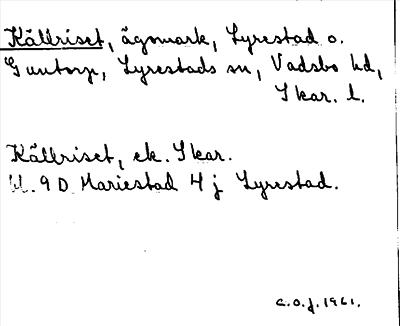 Källriset, ägomark, Lyrestad o.
Guntorp, Lyrestads sn, Vadsbo hd,
Skar. l.
Källriset, ek. Skar.
bl. 9 D Mariestad 4 j Lyrestad.
C.O.J. 1961.